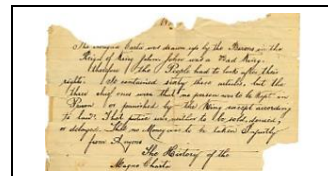 The magna Carta was drawn up by the Barons in the
Reign of King John. John was a Bad King.
therefore the People had to look after their
rights. It contained sixty three articles, but the
three chief ones were that no person was to be kept in
Prison or punished by the King except according
to law. That justice was neither to be sold, denied,
or delayed. That no Money was to be taken
from Anyone
The History of the
Magna Charta